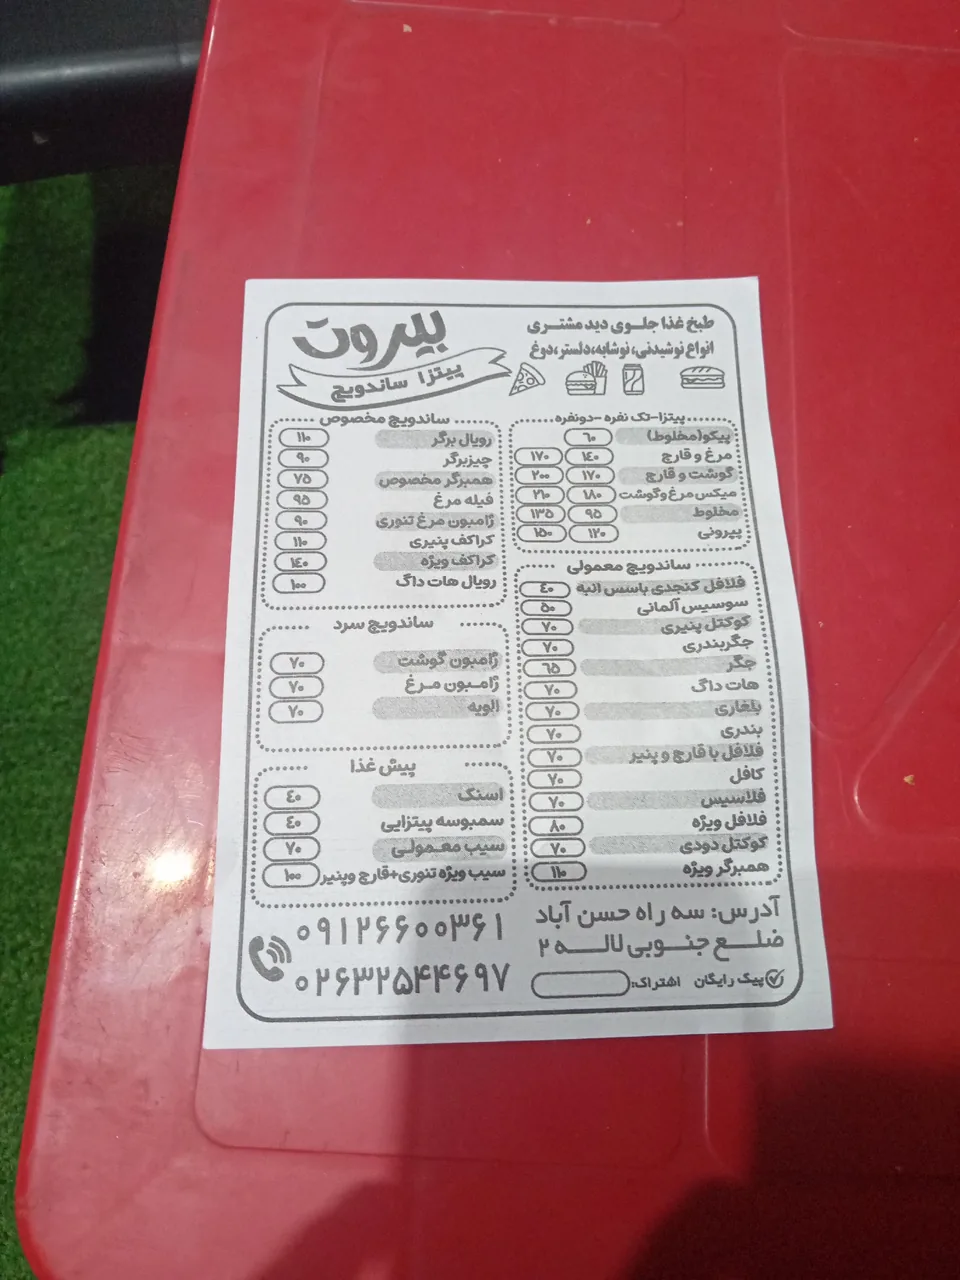 بیروت
پیتزا ساندویچ
طبخ غذا جلوی دید مشتری
انواع نوشیدنی، نوشابه، دلستر، دوغ
پیتزا-تک نفره -دونفره
پیکو(مخلوط) ۶۰
مرغ و قارچ ۱۴۰ ۱۷۰
گوشت و قارچ ۱۷۰ ۲۰۰
میکس مرغ و گوشت ۱۸۰ ۲۱۰
مخلوط ۹۵ ۱۳۵
پپرونی ۱۲۰ ۱۵۰
ساندویچ معمولی
فلافل کنجدی باسس انبه ۴۰
سوسیس آلمانی ۵۰
کوکتل پنیری ۷۰
جگربندری ۷۰
جگر ۶۵
هات داگ ۷۰
بلغاری ۷۰
بندری ۷۰
فلافل با قارچ و پنیر ۷۰
کافل ۷۰
فلاسیس ۷۰
فلافل ویژه ۸۰
کوکتل دودی ۷۰
همبرگر ویژه ۱۱۰
ساندویچ مخصوص
رویال برگر ۱۱۰
چیزبرگر ۹۰
همبرگر مخصوص ۷۵
فیله مرغ ۹۵
ژامبون مرغ تنوری ۹۰
کراکف پنیری ۱۱۰
کراکف ویژه ۱۴۰
رویال هات داگ ۱۰۰
ساندویچ سرد
ژامبون گوشت ۷۰
ژامبون مرغ ۷۰
الویه ۷۰
پیش غذا
اسنک ۴۰
سمبوسه پیتزایی ۴۰
سیب معمولی ۷۰
سیب ویژه تنوری+قارچ وپنیر ۱۰۰
آدرس: سه راه حسن آباد
ضلع جنوبی لاله ۲
پیک رایگان اشتراک:
۰۹۱۲۶۶۰۰۳۶۱
۰۲۶۳۲۵۴۴۶۹۷